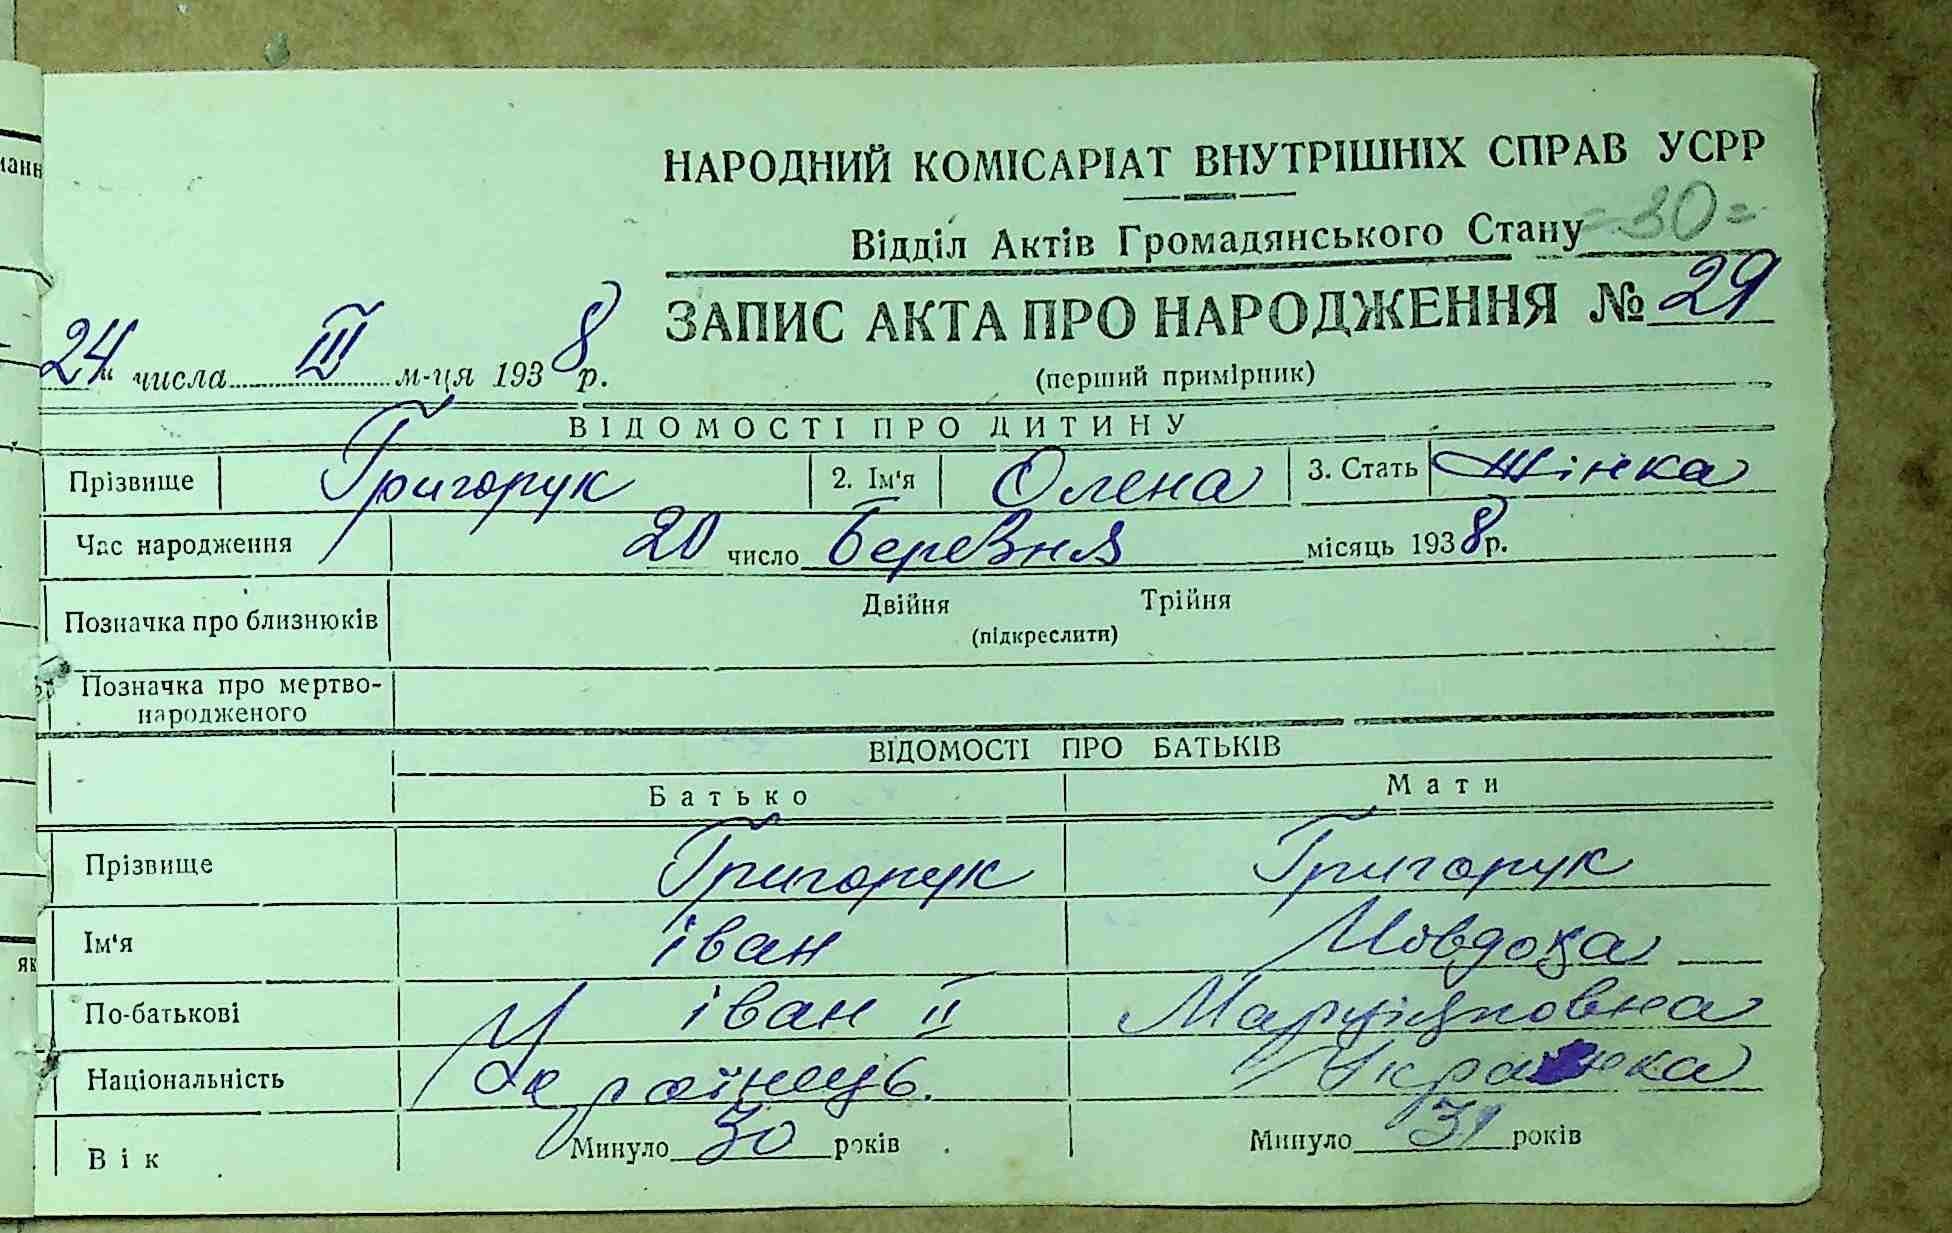 НАРОДНИЙ КОМІСАРІАТ ВНУТРІШНІХ СПРАВ УСРР
Відділ Актів Громадянського Стану =30=
ЗАПИС АКТА ПРО НАРОДЖЕННЯ № 29
24" числа III м-ця 1938 р.
(перший примірник)
ВІДОМОСТІ ПРО ДИТИНУ
Прізвище Григорук 2. Ім'я Олена 3. Стать Жінка
Час народження 20 число Березня місяць 1938 р.
Позначка про близнюків Двійня Трійня
(підкреслити)
Позначка про мертво-
народженого
ВІДОМОСТІ ПРО БАТЬКІВ
Батько Мати
Прізвище Григорук Григорук
Ім'я іван Мовдоха
По-батькові іван II
Національність Українець. Українка
Вік Минуло 30 років Минуло 31 років